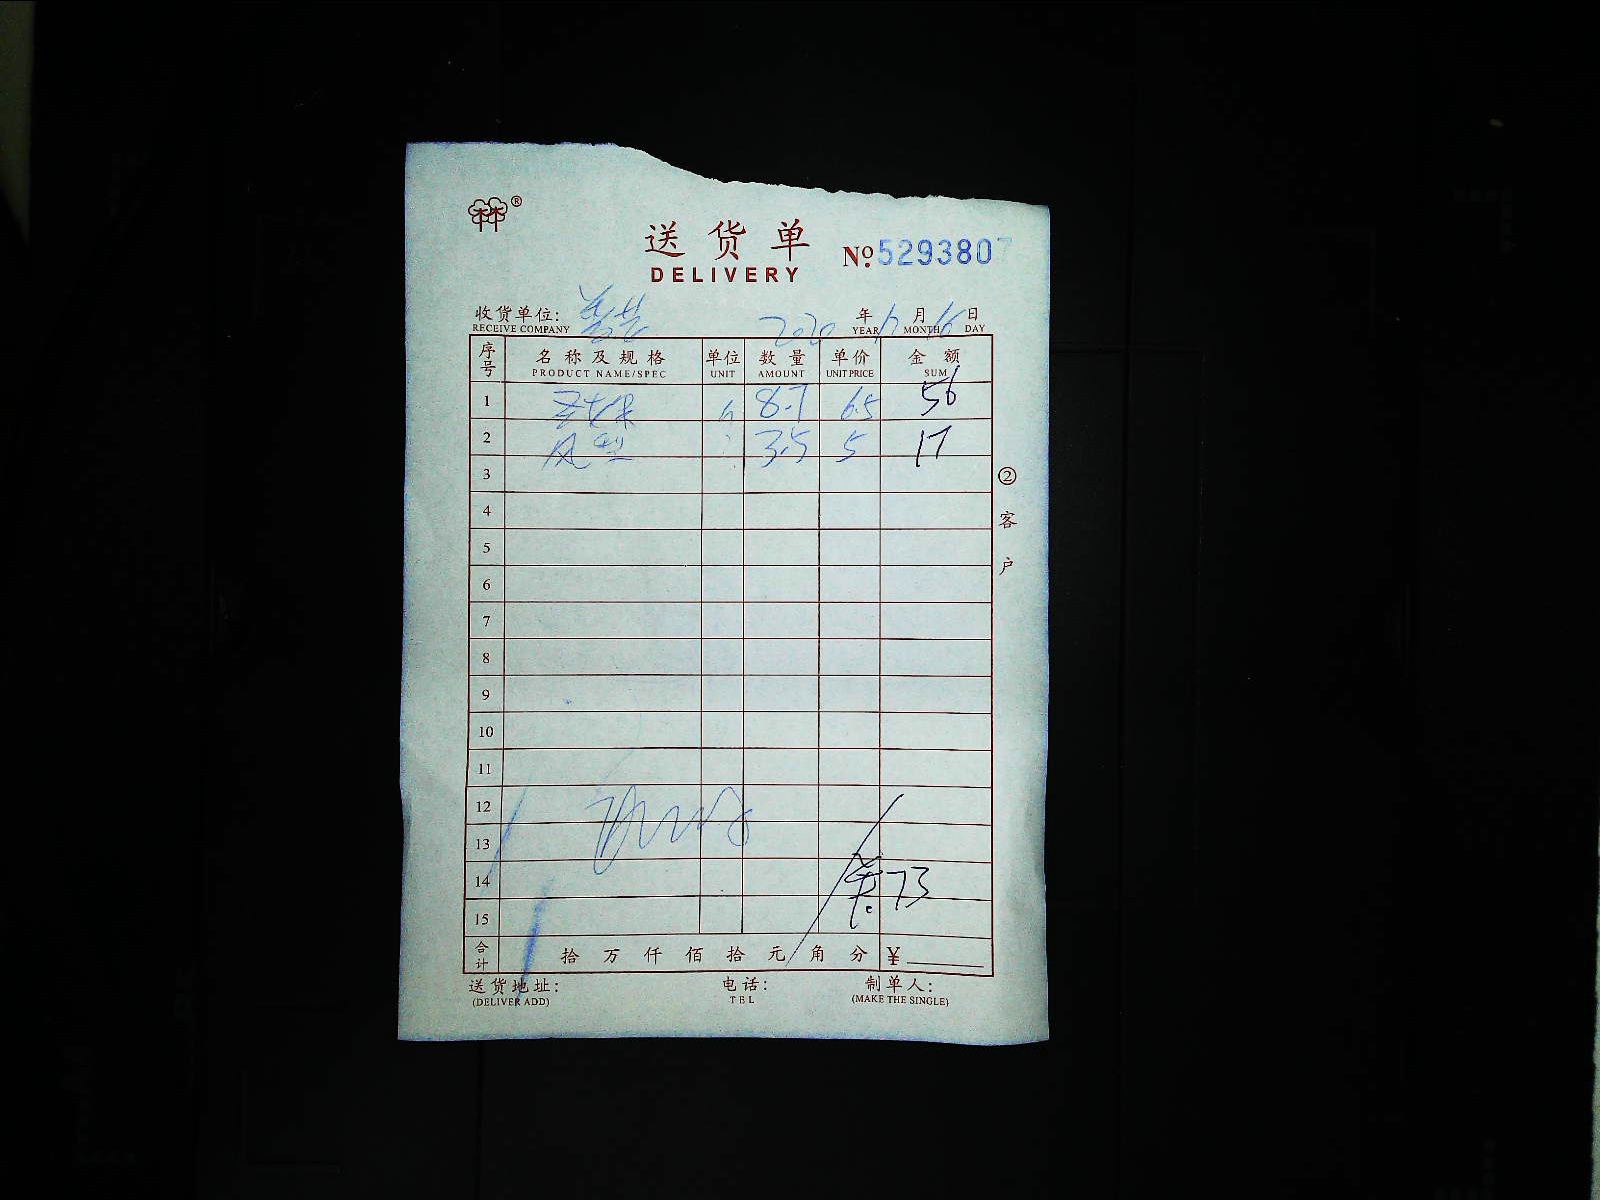 ®
送货单
DELIVERY
№ 5293807
收货单位: 2020 年 月 16 日
RECEIVE COMPANY YEAR MONTH DAY
序号 名称及规格 单位 数量 单价 金额
PRODUCT NAME/SPEC UNIT AMOUNT UNIT PRICE SUM
1 8.7 6.5 56
2 3.5 5 17
3
4
5
6
7
8
9
10
11
12
13
14 73
15
合计 拾 万 仟 佰 拾 元 角 分 ¥
送货地址: 电话: 制单人:
(DELIVER ADD) TEL (MAKE THE SINGLE)
②客户